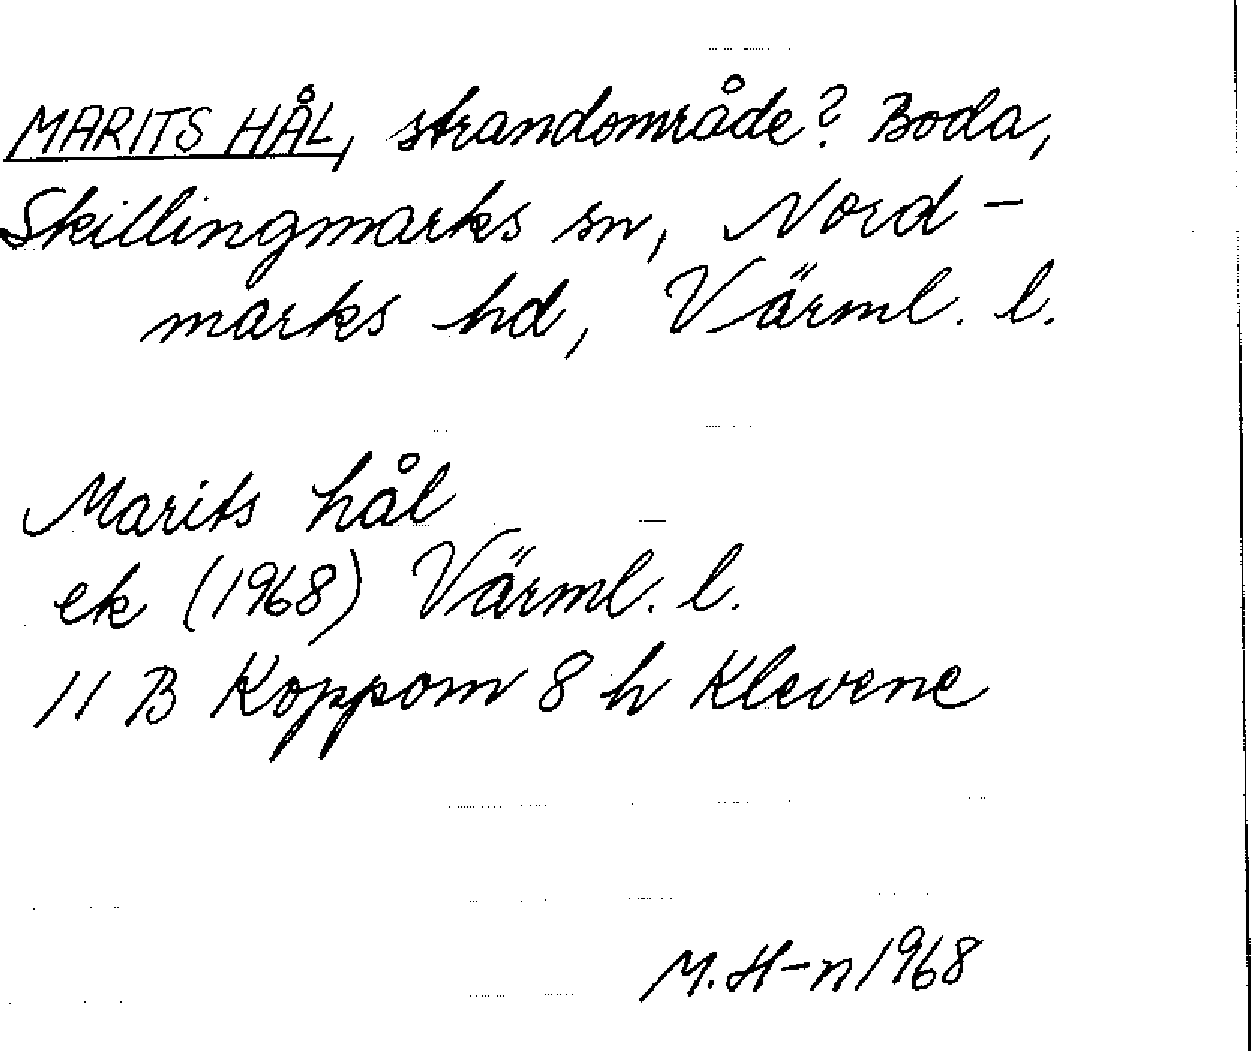 MARITS HÅL, strandområde? Boda,
Skillingmarks sn, Nord-
marks hd, Värml. l.
Marits hål
ek (1968) Värml. l.
11 B Koppom 8 h Klevene
M. H-n 1968